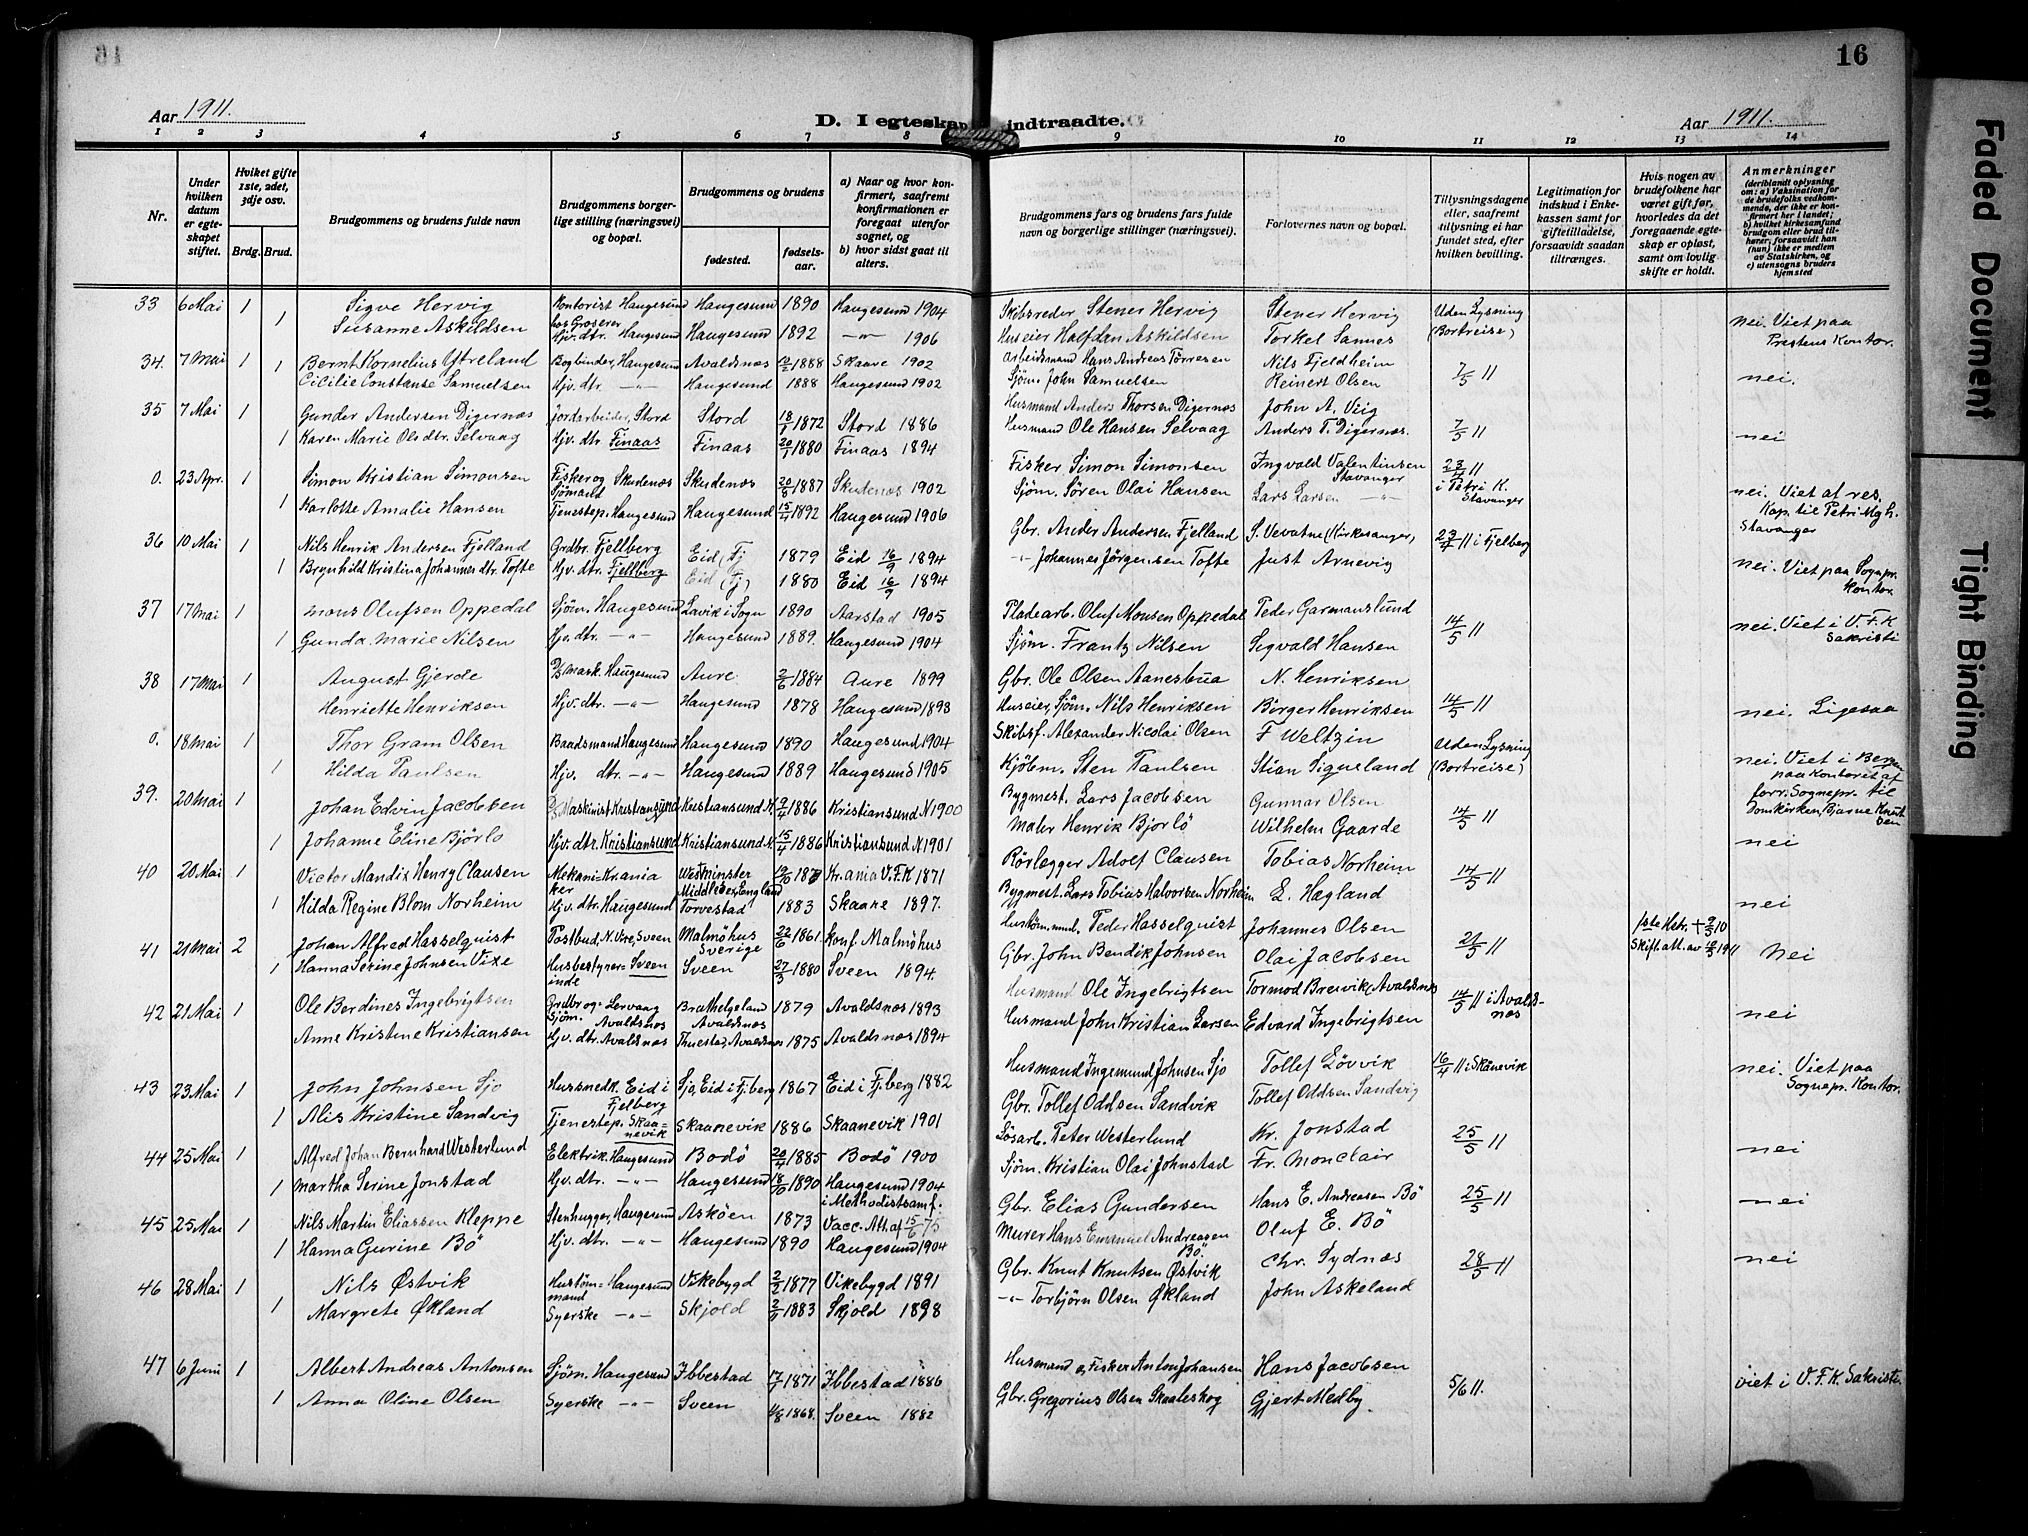 16
Aar 1911.
D. I egteskap indtraadte.
Aar 1911.
1 2 3 4 5 6 7 8 9 10 11 12 13 14
Nr.
Under hvilken datum er egteskapet stiftet.
Hvilket gifte 1ste, 2det, 3dje osv.
Brdg. Brud.
Brudgommens og brudens fulde navn
Brudgommens borgerlige stilling (næringsvei) og bopæl.
Brudgommens og brudens
fødested.
fødselsaar.
a) Naar og hvor konfirmert, saafremt konfirmationen er foregaat utenfor sognet, og
b) hvor sidst gaat til alters.
Brudgommens fars og brudens fars fulde navn og borgerlige stillinger (næringsvei).
Forlovernes navn og bopæl.
Tillysningsdagene eller, saafremt tillysning ei har fundet sted, efter hvilken bevilling.
Legitimation for indskud i Enkekassen samt for giftetilladelse, forsaavidt saadan tiltrænges.
Hvis nogen av brudefolkene har været gift før, hvorledes da det foregaaende egteskap er opløst, samt om lovlig skifte er holdt.
Anmerkninger
(deriblandt oplysning om: a) Vaksination for de brudefolks vedkommende, der ikke er konfirmert her i landet; b) hvilket kirkesamfund brudgom eller brud tilhører, forsaavidt han (hun) ikke er medlem av Statskirken, og c) utensogns bruders hjemsted
33 6 Mai 1 Sigve Hervig Kontorist Haugesund Haugesund 1890 Haugesund 1904 Skibsreder Stener Hervig Stener Hervig Uden Lysning
1 Susanne Askildsen Hjv. dtr. Haugesund Haugesund 1892 -"- 1906 Huseier Halfdan Askildsen Torkel Sannes (Bortreise) nei. Viet paa Prestens Kontor.
34. 7 Mai 1 1 Bernt Kornelius Ytreland Bogbinder, Haugesund Avaldsnes 1888 Skaare 1902 Arbeidsmand Hans Andreas Tørresen Nils Fjeldheim 7/5 11
Cicilie Constanse Samuelsen Hjv. dtr. -"- Haugesund 1888 Haugesund 1902 Sjøm. John Samuelsen Reinert Olsen nei.
35 7 Mai 1 Gunder Andersen Digernæs jordarbeider, Stord Stord 1872 Stord 1886 Husmand Anders Thorsen Digernæs John A. Viig
1 Karen Marie Olsdtr. Selvaag Hjv. dtr. Finaas Finaas 1880 Finaas 1894 Husmand Ole Hansen Selvaag Anders T. Digernæs. 7/5 11 nei
0. 23 Apr. 1 Simon Kristian Simonsen Fisker og Sjømand Skudenæs Skudenæs 20/8 1887 Skudenæs 1902 Fisker Simon Simonsen Ingvald Valentinsen Stavanger 23/4 11
1 Karlotte Amalie Hansen Tjenestep. Haugesund Haugesund 15/4 1892 Haugesund 1906 Sjøm. Søren Olai Hansen Lars Larsen -"- i Petri K. Stavanger nei. Viet af res. Kap. til Petri Mgh. Stavanger
36 10 Mai 1 Nils Henrik Andersen Fjelland Grdbr. Fjellberg Eid (Fj 1879 Eid 16/9 1894 Gbr. Ander Andersen Fjelland S. Vevatne (Kirkesanger, 23/4 11 i Fjelberg
1 Brynhild Kristina Johannesdtr. Tofte Hjv. dtr. Fjellberg Eid (Fj) 1880 Eid 16/9 1894 -"- Johannes Jørgensen Tofte Just Arnevig nei. Viet paa Sognepr. Kontor
37 17 Mai 1 Mons Olufsen Oppedal Sjøm. Haugesund Lavik i Sogn 1890 Aarstad 1905 Pladearb. Oluf Monsen Oppedal Peder Garmanslund 14/5 11
1 Gunda Marie Nilsen Hjv. dtr. -"- Haugesund 1889. Haugesund 1904 Sjøm. Frantz Nilsen Sigvald Hansen nei. Viet i V. F. K Sakristi
38 17 Mai 1 August Gjerde Haugesund Aure 2/6 1884 Aure 1899 Gbr. Ole Olsen Aanesbua N. Henriksen
Henriette Henriksen Hjv. dtr. -"- Haugesund 1878 Haugesund 1893 Huseier, Sjøm. Nils Henriksen Birger Henriksen 14/5 11 nei. Ligesaa
0. 18 Mai 1 Thor Gram Olsen Baadsmand Haugesund Haugesund 1890 Haugesund 1904 Skibsf. Alexander Nicolai Olsen F Weltzin Uden Lysning
1 Hilda Paulsen Hjv. dtr. -"- Haugesund 1889 Haugesund 1905 Kjøbm. Sten Paulsen Stian Sigveland (Bortreise) nei. Viet i Bergen paa Kontoret af forr. Sognepr. til Domkirken, Bjarne Knutsen
39. 20 Mai 1 Johan Edvin Jacobsen Maskinist Kristiansund Kristiansund N. 1886 Kristiansund N 1900 Bygmest. Lars Jacobsen Gunnar Olsen 14/5 11
1 Johanne Eline Bjørlo Hjv. dtr. Kristiansund Kristiansund N. 15/4 1886 Kristiansund N 1901 Maler Henrik Bjørlö Wilhelm Gaarde nei
40 20 Mai 1 Victor Mandix Henry Clausen Mekaniker Kr.ania Westminster Middlesex, England Kr. ania V. F. K 1871 Rørlegger Adolf Clausen Tobias Norheim 14/5 11
1 Hilda Regine Blom Norheim Hjv. dtr. Haugesund Torvestad 1883 Skaare 1897. Bygmest. Lars Tobias Halvorsen Norheim L. Hægland nei
41 21 Mai 2 Johan Alfred Hasselquist Postbud, N. Vixe, Sveen Malmöhus Sverige 22/6 1861 Konf. Malmöhus Peder Hasselquist Johannes Olsen 21/5 11 1ste Hstr. + 9/5 10 Skift. att. av 1911
1 Hanna Serine Johnsen Vixe Husbestyrerinde Sveen Sveen 27/3 1880 Sveen 1894. Gbr. John Bendik Johnsen Olai Jacobsen Nei
42 21 Mai 1 Ole Berdines Ingebrigtsen Grdbr og Sjøm. Lervaag Avaldsnæs Avaldsnæs 1879 Avaldsnæs 1893 Husmand Ole Ingebrigtsen Tormod Breivik, Avaldsnæs 14/5 11 i Avaldsnæs
Anne Kristine Kristiansen Hjv. dtr. Avaldsnæs Thuestad, Avaldsnæs 1875 Avaldsnæs 1894 Husmand John Kristian Larsen Edvard Ingebrigtsen nei
43 23 Mai 1 John Johnsen Sjo Husmedk. Eid i Fjelberg Sjo, Eid i Fjberg 1867 Eid i Fjberg 1882 Husmand Ingemund Johnsen Sjo Tollef Løvvik 16/4 11 i Skånevik
1 Alis Kristine Sandvig Tjenestep. Skaanevik Skaanevik 1886 Skaanevik 1901 Gbr. Tollef Oddsen Sandvik Tollef Oddsen Sandvig nei. Viet paa Sognepr. Kontor.
44 25 Mai 1 Alfred Johan Bernhard Westerlund Elektrik. Haugesund Bodø 20/4 1885 Bodø 1900 Løsarb. Peter Westerlund Kr. Jonstad 25/5 11
1 Martha Serine Jonstad Hjv. dtr. -"- Haugesund 18/6 1890 Haugesund 1904 i Methodistsamf. Sjøm. Kristian Olai Johnstad Fr. Monclair nei
45 25 Mai 1 Nils Martin Eliassen Kleppe Stenhugger, Haugesund Askøen 1873 Vacc. Att. af 15/6 75 Gbr. Elias Gundersen Hans E. Andreasen Bö 25/5 11
1 Hanna Gurine Bö Hjv. dtr. -"- Haugesund 1890 Haugesund 1904 Murer Hans Emanuel Andreasen Bö. Oluf E. Bö nei
46 28 Mai 1 Nils Østvik Hustømmermand Haugesund Vikebygd 1877 Vikebygd 1891 Gbr. Knut Knutsen Østvik Chr. Sydnæs 28/5 11
1 Margrete Økland Syerske -"- Skjold 1883 Skjold 1898 -"- Torbjørn Olsen Økland John Askeland nei
47 6 Juni 1 Albert Andreas Antonsen Sjøm. Haugesund Ibbestad 1871 Ibbestad 1886 Husmand o, Fisker Anton Johansen Hans Jacobsen
1 Anna Oline Olsen Syerske -"- Sveen 1868. Sveen 1882 Gbr. Gregorius Olsen Skaaleskog Gjert Medby. 5/6 11. viet i V. F. K. Sakristi.
Faded Document
Tight Binding